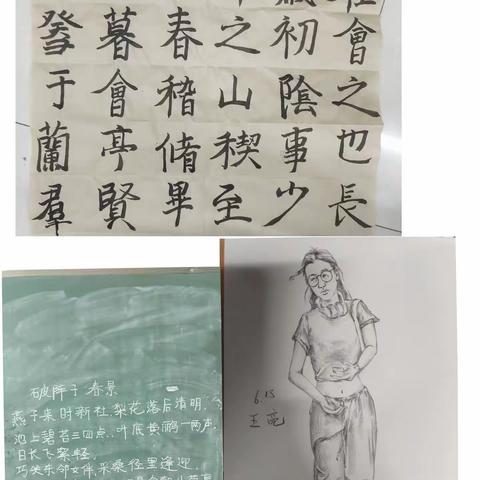 癸丑暮春之初會
于會稽山陰之
蘭亭脩稧事也
羣賢畢至少長
破阵子 春景
燕子来时新社,梨花落后清明.
池上碧苔三四点.叶底黄鹂一两声,
日长飞絮轻.
巧笑东邻女伴,采桑径里逢迎.
6.15